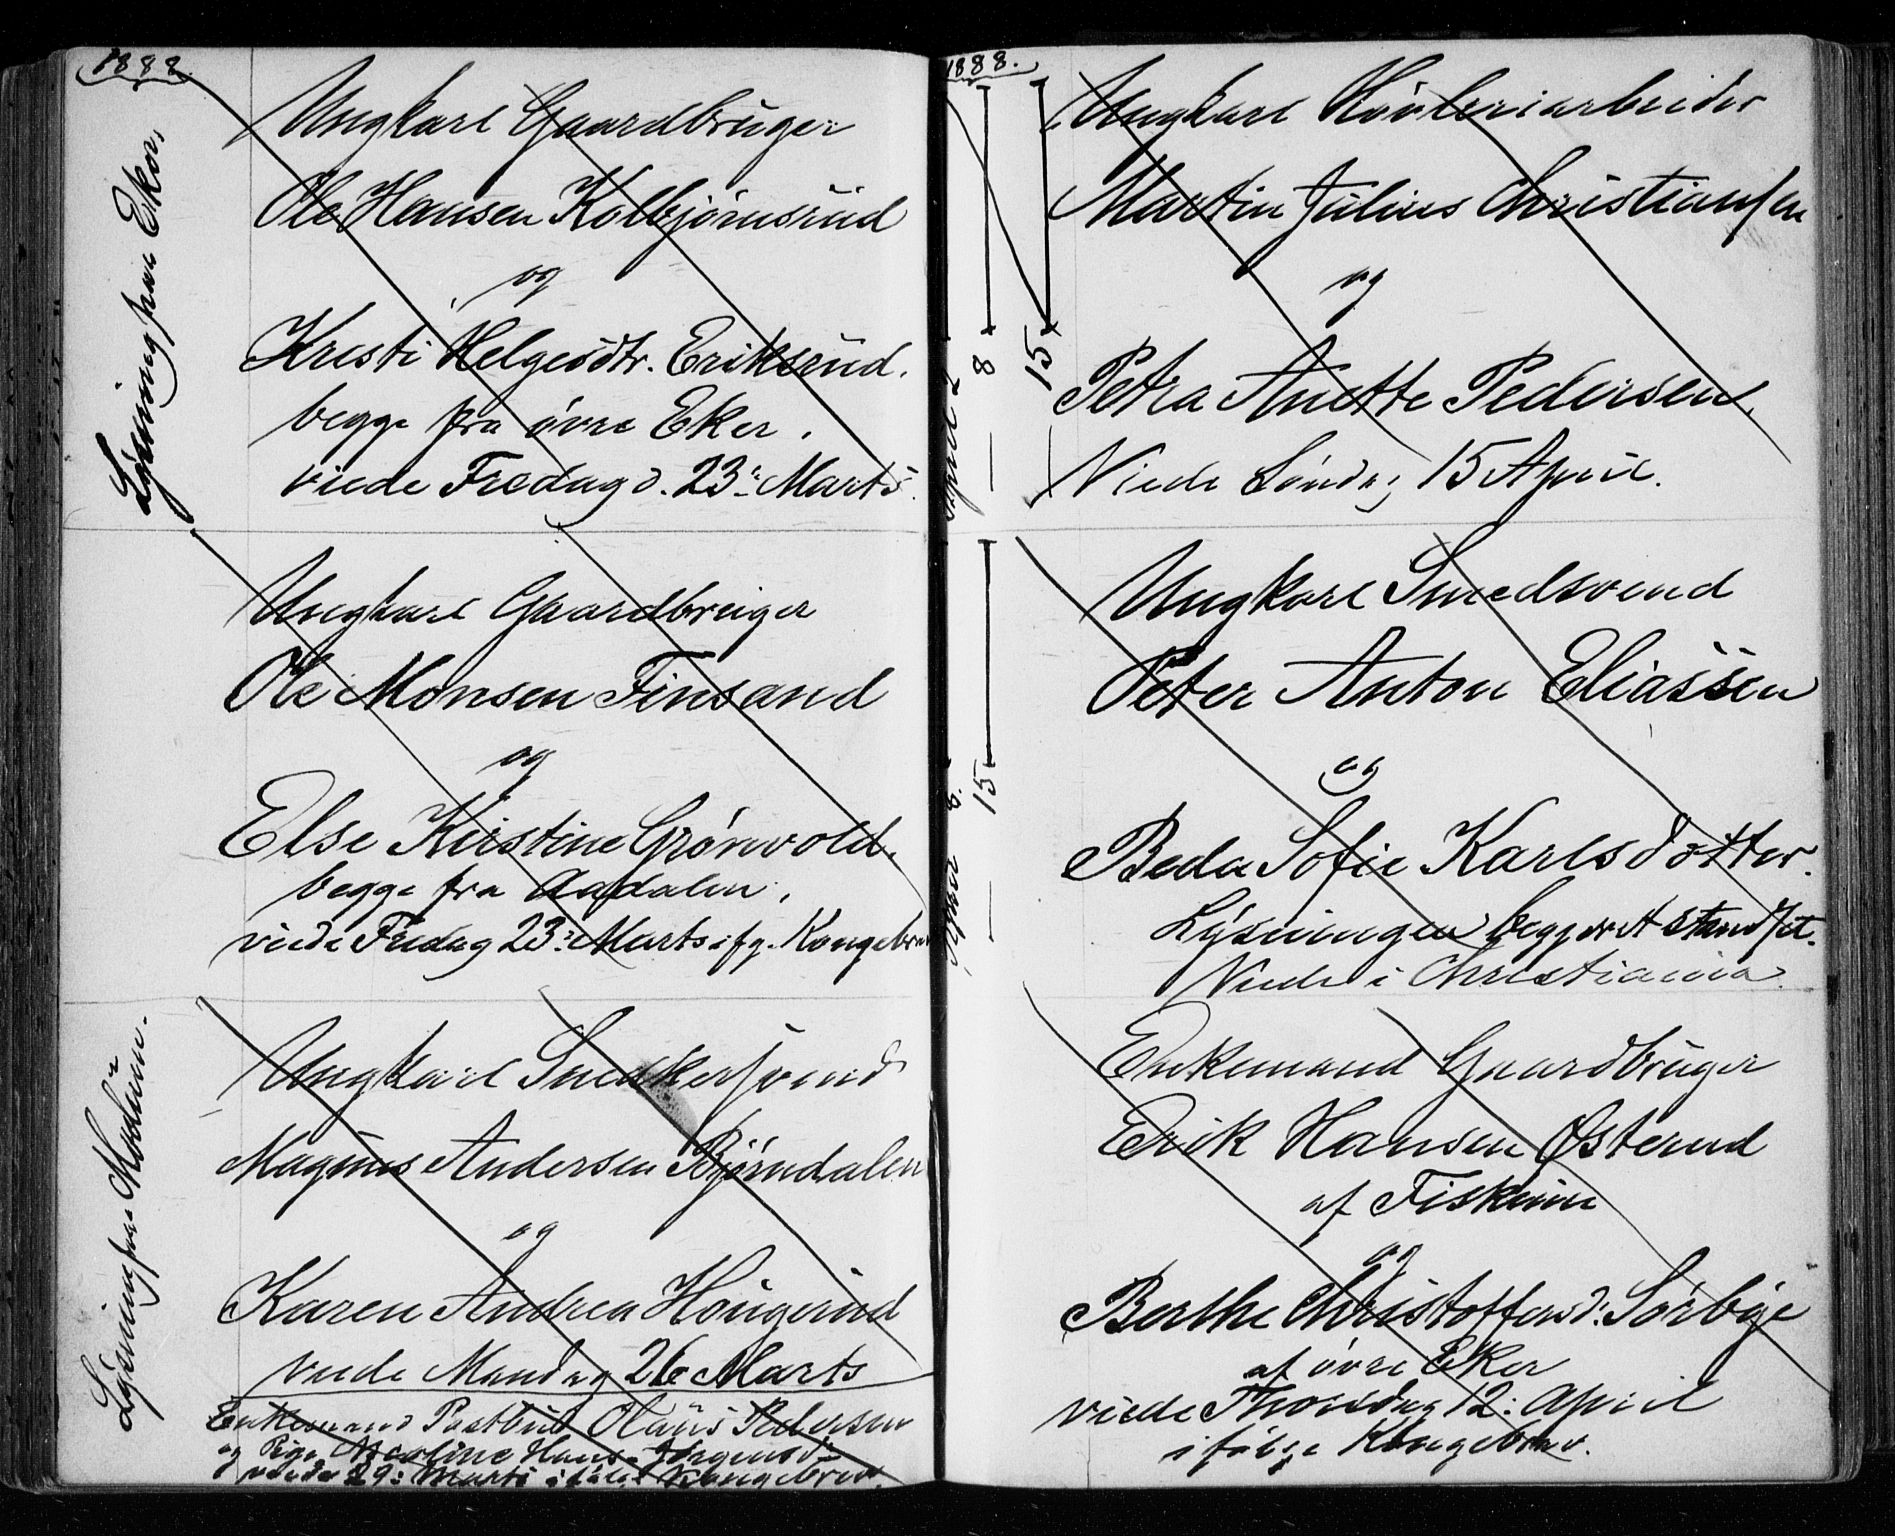 1888.
Lysning fra Eker,
Ungkarl Gaardbruger
Ole Hansen Kolbjørnsrud
og
Kristi Helgesdtr. Eriksrud.
begge fra øvre Eker.
viede Fredag d. 23: Marts.
Ungkarl Gaardbruger
Ole Monsen Finsand
og
Else Kirstine Grønvold,
begge fra Aadalen,
viede Fredag 23: Marts ifg. Kongebrev
Lysning fra Modum.
Ungkarl Snedkersvend
Magnus Andersen Bjørndalen
og
Karen Andrea Hougerud
viede Mandag 26 Marts
Enkemand Postbud Olaus Pedersen
og Pige Hans Jørgensd:
viede 29: Marts ifølge Kongebrev.
1888.
April 2
8
15
Ungkarl Høvleriarbeider
Martin Julius Christiansen
og
Petra Anette Pedersen,
Viede Søndag 15 April.
April 8.
15
Ungkarl Smedsvend
Peter Anton Eliassen
og
Beda Sofie Karlsdotter.
Lysningen begjæret standset.
Viede i Christiania.
Enkemand Gaardbruger
Erik Hansen Østerud
af Fiskum
og
Berthe Christoffersd: Sørbye
af øvre Eker
viede Thorsdag 12: April
ifølge Kongebrev.